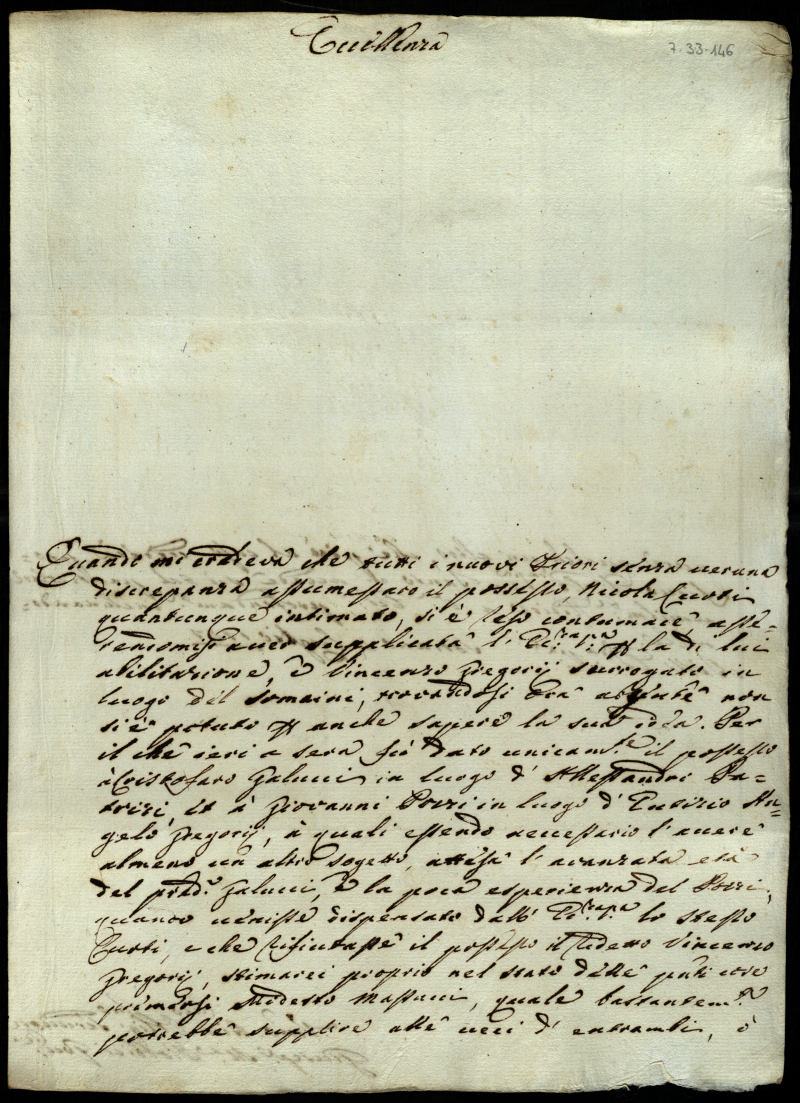 Eccellenza
7-33-146
Quando mi credeva che tutti i nuovi Priori senza veruna
discrepanza assumessaro il possesso, Nicola Curti
quantunque intimato, si è reso contumace asse=
rendomisi aver supplicata l'E. V. la di lui
abilitazione, e Vincenzo Gregorj surrogato in
luogo del Somaini, trovandosi ora assente non
si è potuto anche sapere la sua idea. Per
il che ieri a sera fù dato unicam.te il possesso
à Cristofaro Galucci in luogo d' Allessandro Pa=
trizi, et à Giovanni Pozzi in luogo d' Fabrizio An=
gelo Gregorj, à quali essendo necessario l' avere
almeno un altro sogetto, attesa l' avanzata età
del pred.o Galucci, e la poca esperienza del Pozzi,
quando venisse dispensato dall' E. V. lo stesso
Curti, e che rifiutasse il possesso il sudetto Vincenzo
Gregorj, stimarei proprio nel stato delle pnti cose
Modesto Massucci, quale bastantem.te
potrebbe supplire alle veci d' entrambi, ò